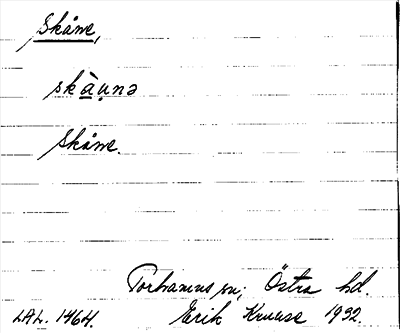 Skåne,
skàu̩nə
Skåne.
Torhamns sn; Östra hd.
LAL. 1464. Erik Kruuse 1932.